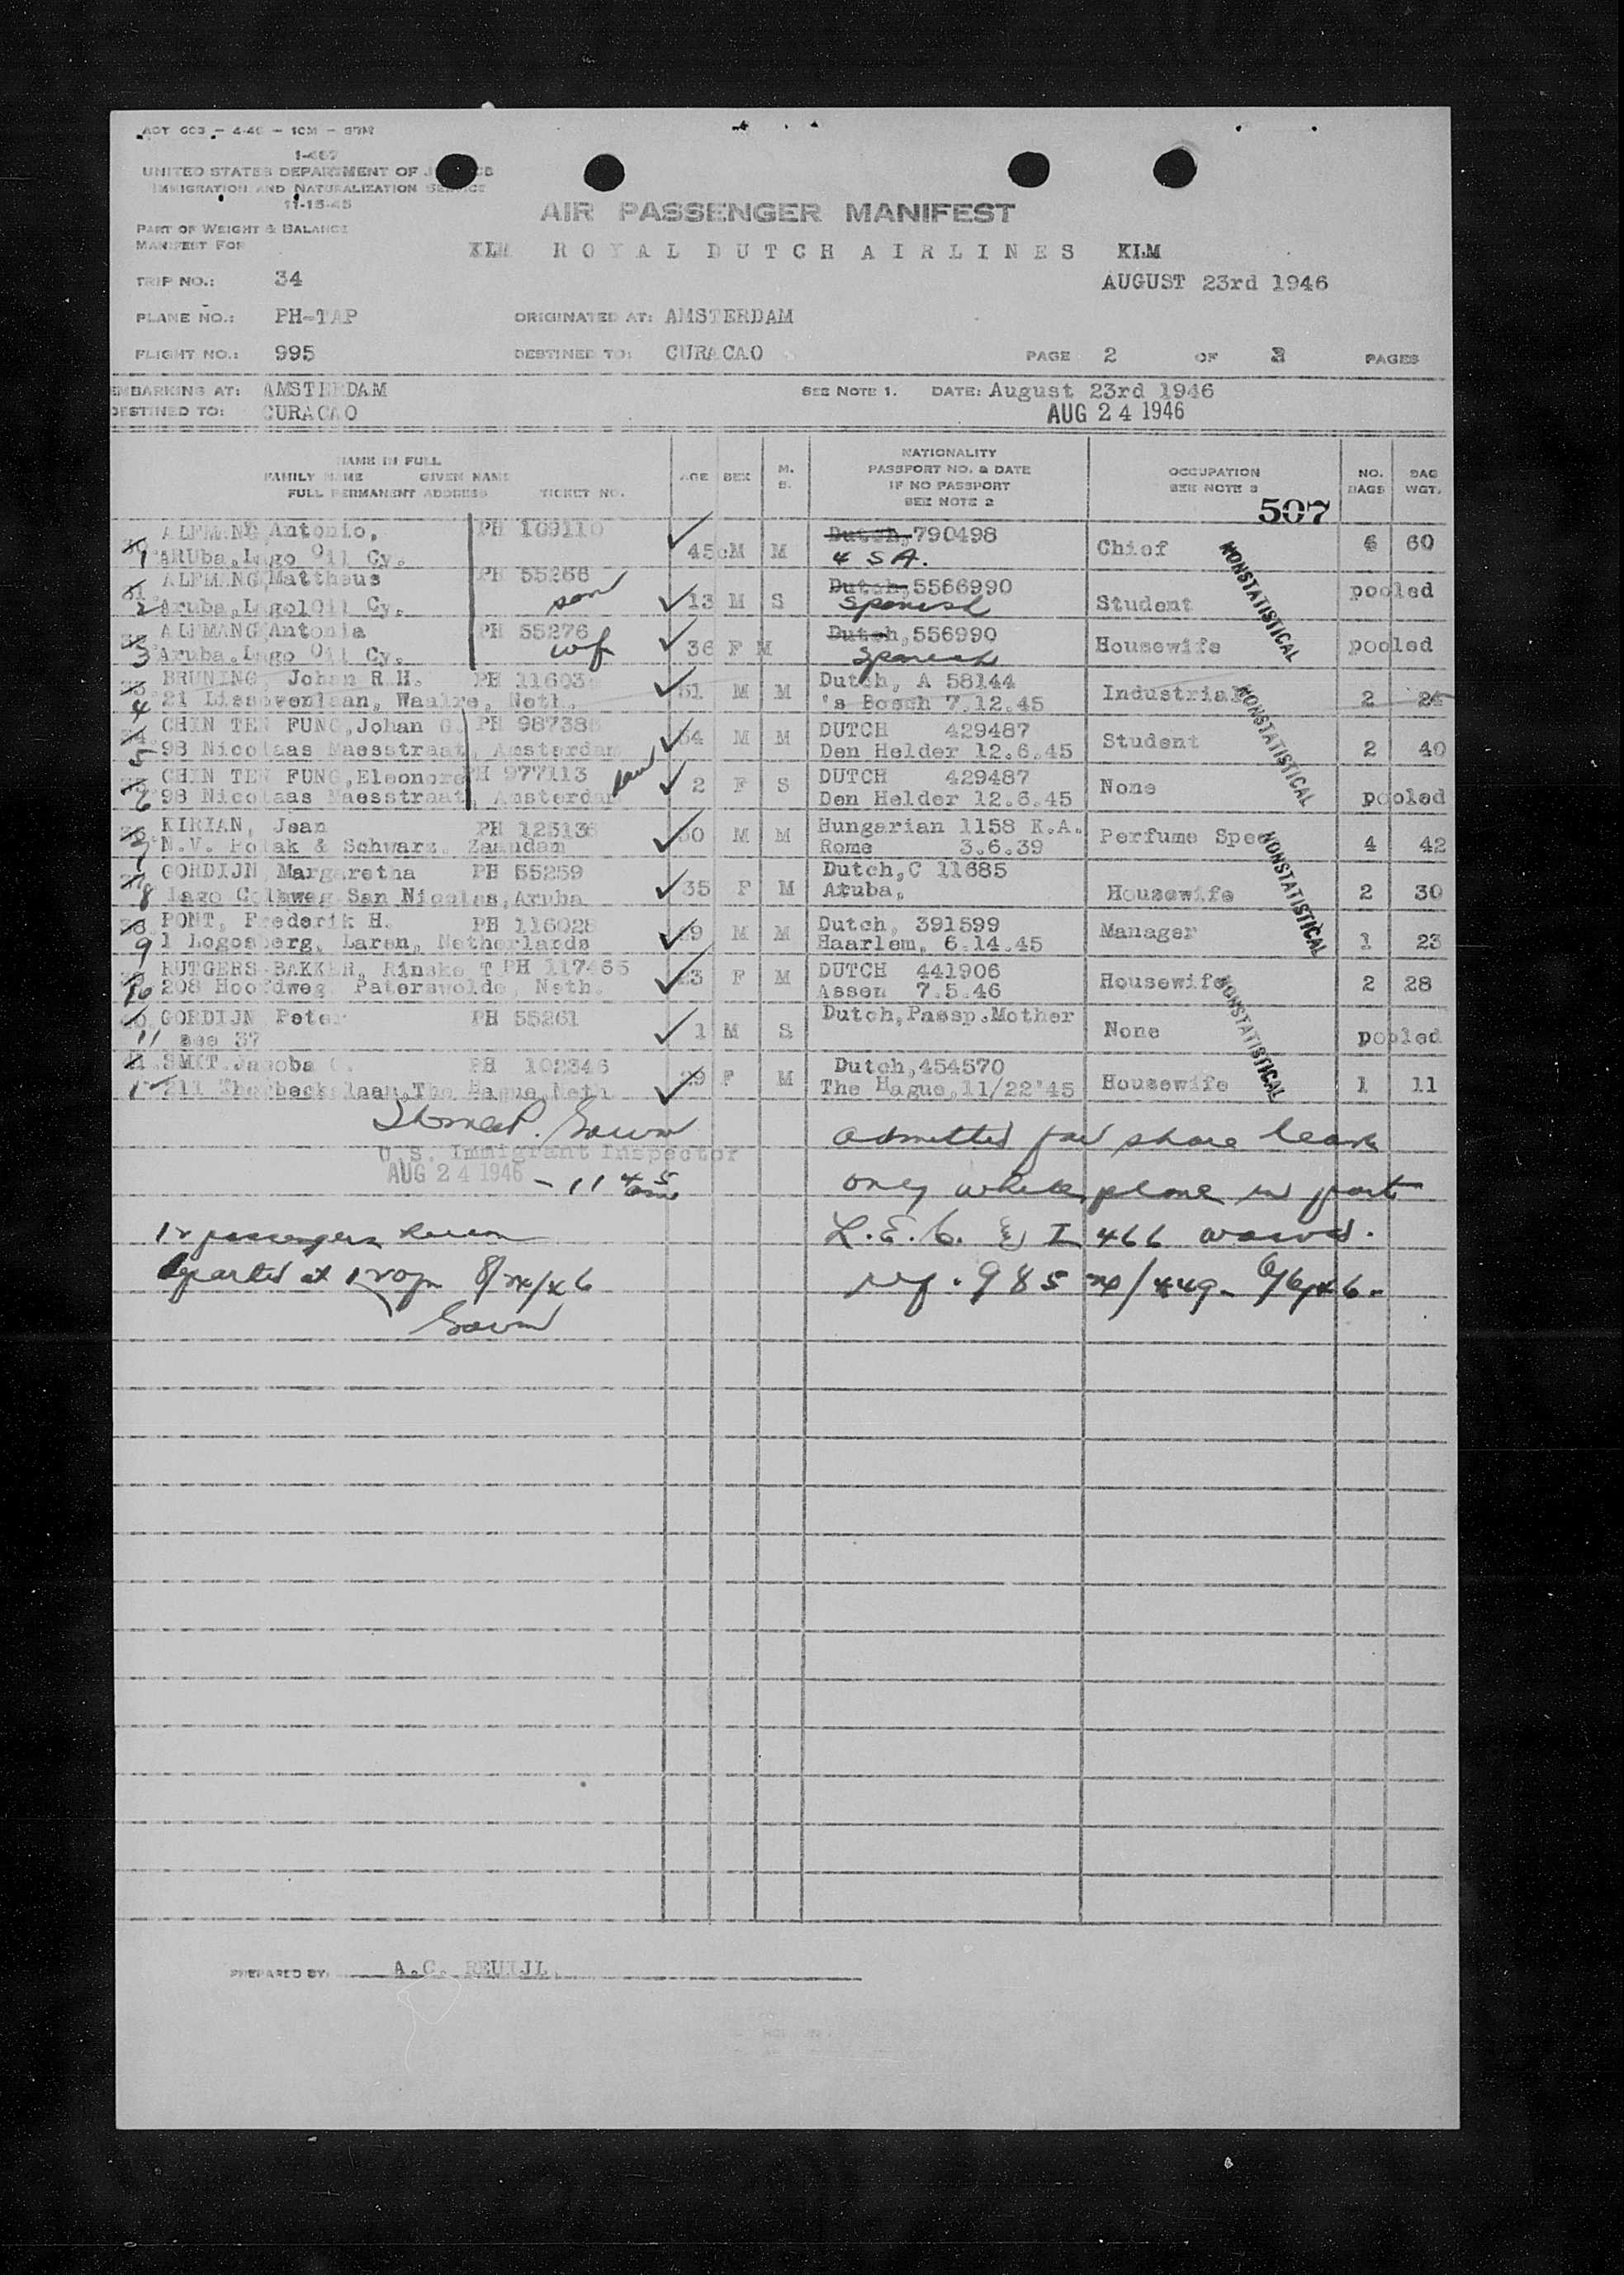 1-467
UNITED STATES DEPARTMENT OF
IMMIGRATION AND NATURALIZATION SERVICE
11-15-45
AIR PASSENGER MANIFEST
PART OF WEIGHT & BALANCE
MANIFEST FOR
KLM ROYAL DUTCH AIRLINES KLM
TRIP NO.: 34 AUGUST 23rd 1946
PLANE NO.: PH-TAP ORIGINATED AT: AMSTERDAM
FLIGHT NO.: 995 DESTINED TO: CURACAO PAGE 2 OF PAGES
EMBARKING AT: AMSTERDAM SEE NOTE 1. DATE: August 23rd 1946
DESTINED TO: CURACAO AUG 24 1946
NAME IN FULL
FAMILY NAME GIVEN NAME
FULL PERMANENT ADDRESS TICKET NO. AGE SEX M. S. NATIONALITY
PASSPORT NO. & DATE
IF NO PASSPORT
SEE NOTE 2 OCCUPATION
SEE NOTE 3 NO. BAGS BAG WGT.
507
ALEMANG Antonio, PH 109110 Dutch, 790498
1 ARUba, Lago Oil Cy. 45 M M Chief 6 60
ALEMANG Mattheus PH 55266 Dutch, 5566990 pooled
2 Aruba, Lago Oil Cy. son 13 M S Spanish Student
ALEMANG Antonia PH 55276 Dutch, 556990
3 Aruba, Lago Oil Cy. wf 36 F M Spanish Housewife pooled
BRUNING, Johan R.H. PH Dutch, A 58144
4 21 Waalre, Neth. 51 M M 's Bosch 7.12.45 Industrial 2 24
CHIN TEN FUNG, Johan G. PH 987386 DUTCH 429487
5 98 Nicolaas Maesstraat, Amsterdam M M Den Helder 12.6.45 Student 2 40
CHIN TEN FUNG, Eleonore PH 977113 DUTCH 429487
6 98 Nicolaas Maesstraat, Amsterdam 2 F S Den Helder 12.6.45 None pooled
KIRIAN, Jean PH 125136 Hungarian 1158 K.A.
7 N.V. Polak & Schwarz. Zaandam M M Rome 3.6.39 Perfume Spec 4 42
GORDIJN Margaretha PH 55259 Dutch, C 11685
8 Lago San Nicolas, Aruba 35 F M Aruba, Housewife 2 30
PONT, Frederik H. PH 116028 Dutch, 391599
9 1 Logosberg, Laren, Netherlands M M Haarlem, 6.14.45 Manager 1 23
RUTGERS-BAKKER, Rinske T PH 117465 DUTCH 441906
10 208 Hoofdweg Paterswolde, Neth. F M Assen 7.5.46 Housewife 2 28
GORDIJN Peter PH 55261 Dutch, Passp. Mother
11 see 37 1 M S None pooled
SMIT. Jacoba C. PH 102346 Dutch, 454570
12 211 Thorbeckelaan, The Hague, Neth 29 F M The Hague, 11/22'45 Housewife 1 11
NONSTATISTICAL
NONSTATISTICAL
NONSTATISTICAL
NONSTATISTICAL
U.S. Immigrant Inspector
AUG 24 1946 - 11 45 am
admitted for shore leave
only while plane in port
L.E.C. & I 466 waived.
12 passengers
departed at 120 pm 8/24/46
PREPARED BY: A.C. REUIJL